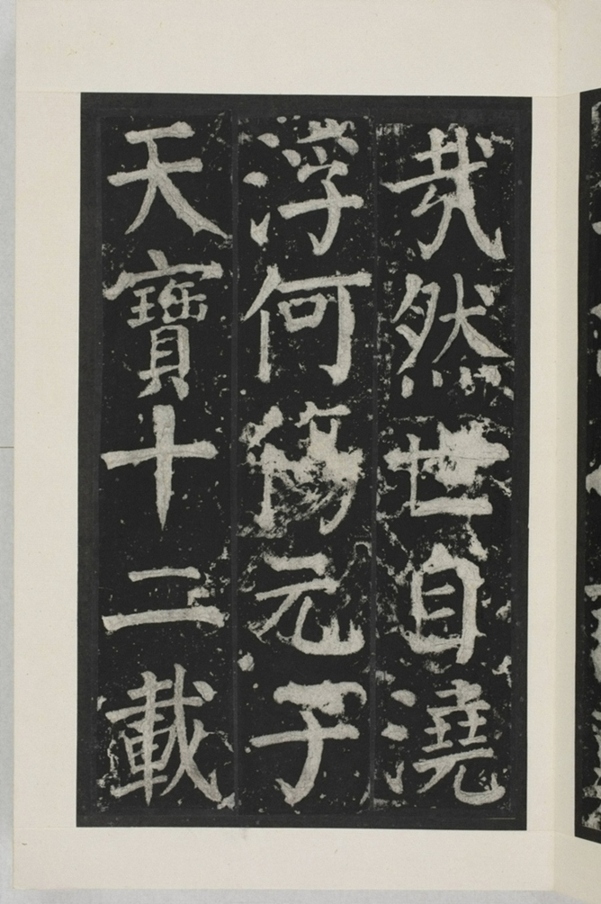 哉然世自澆
浮何傷元子
天寶十二載